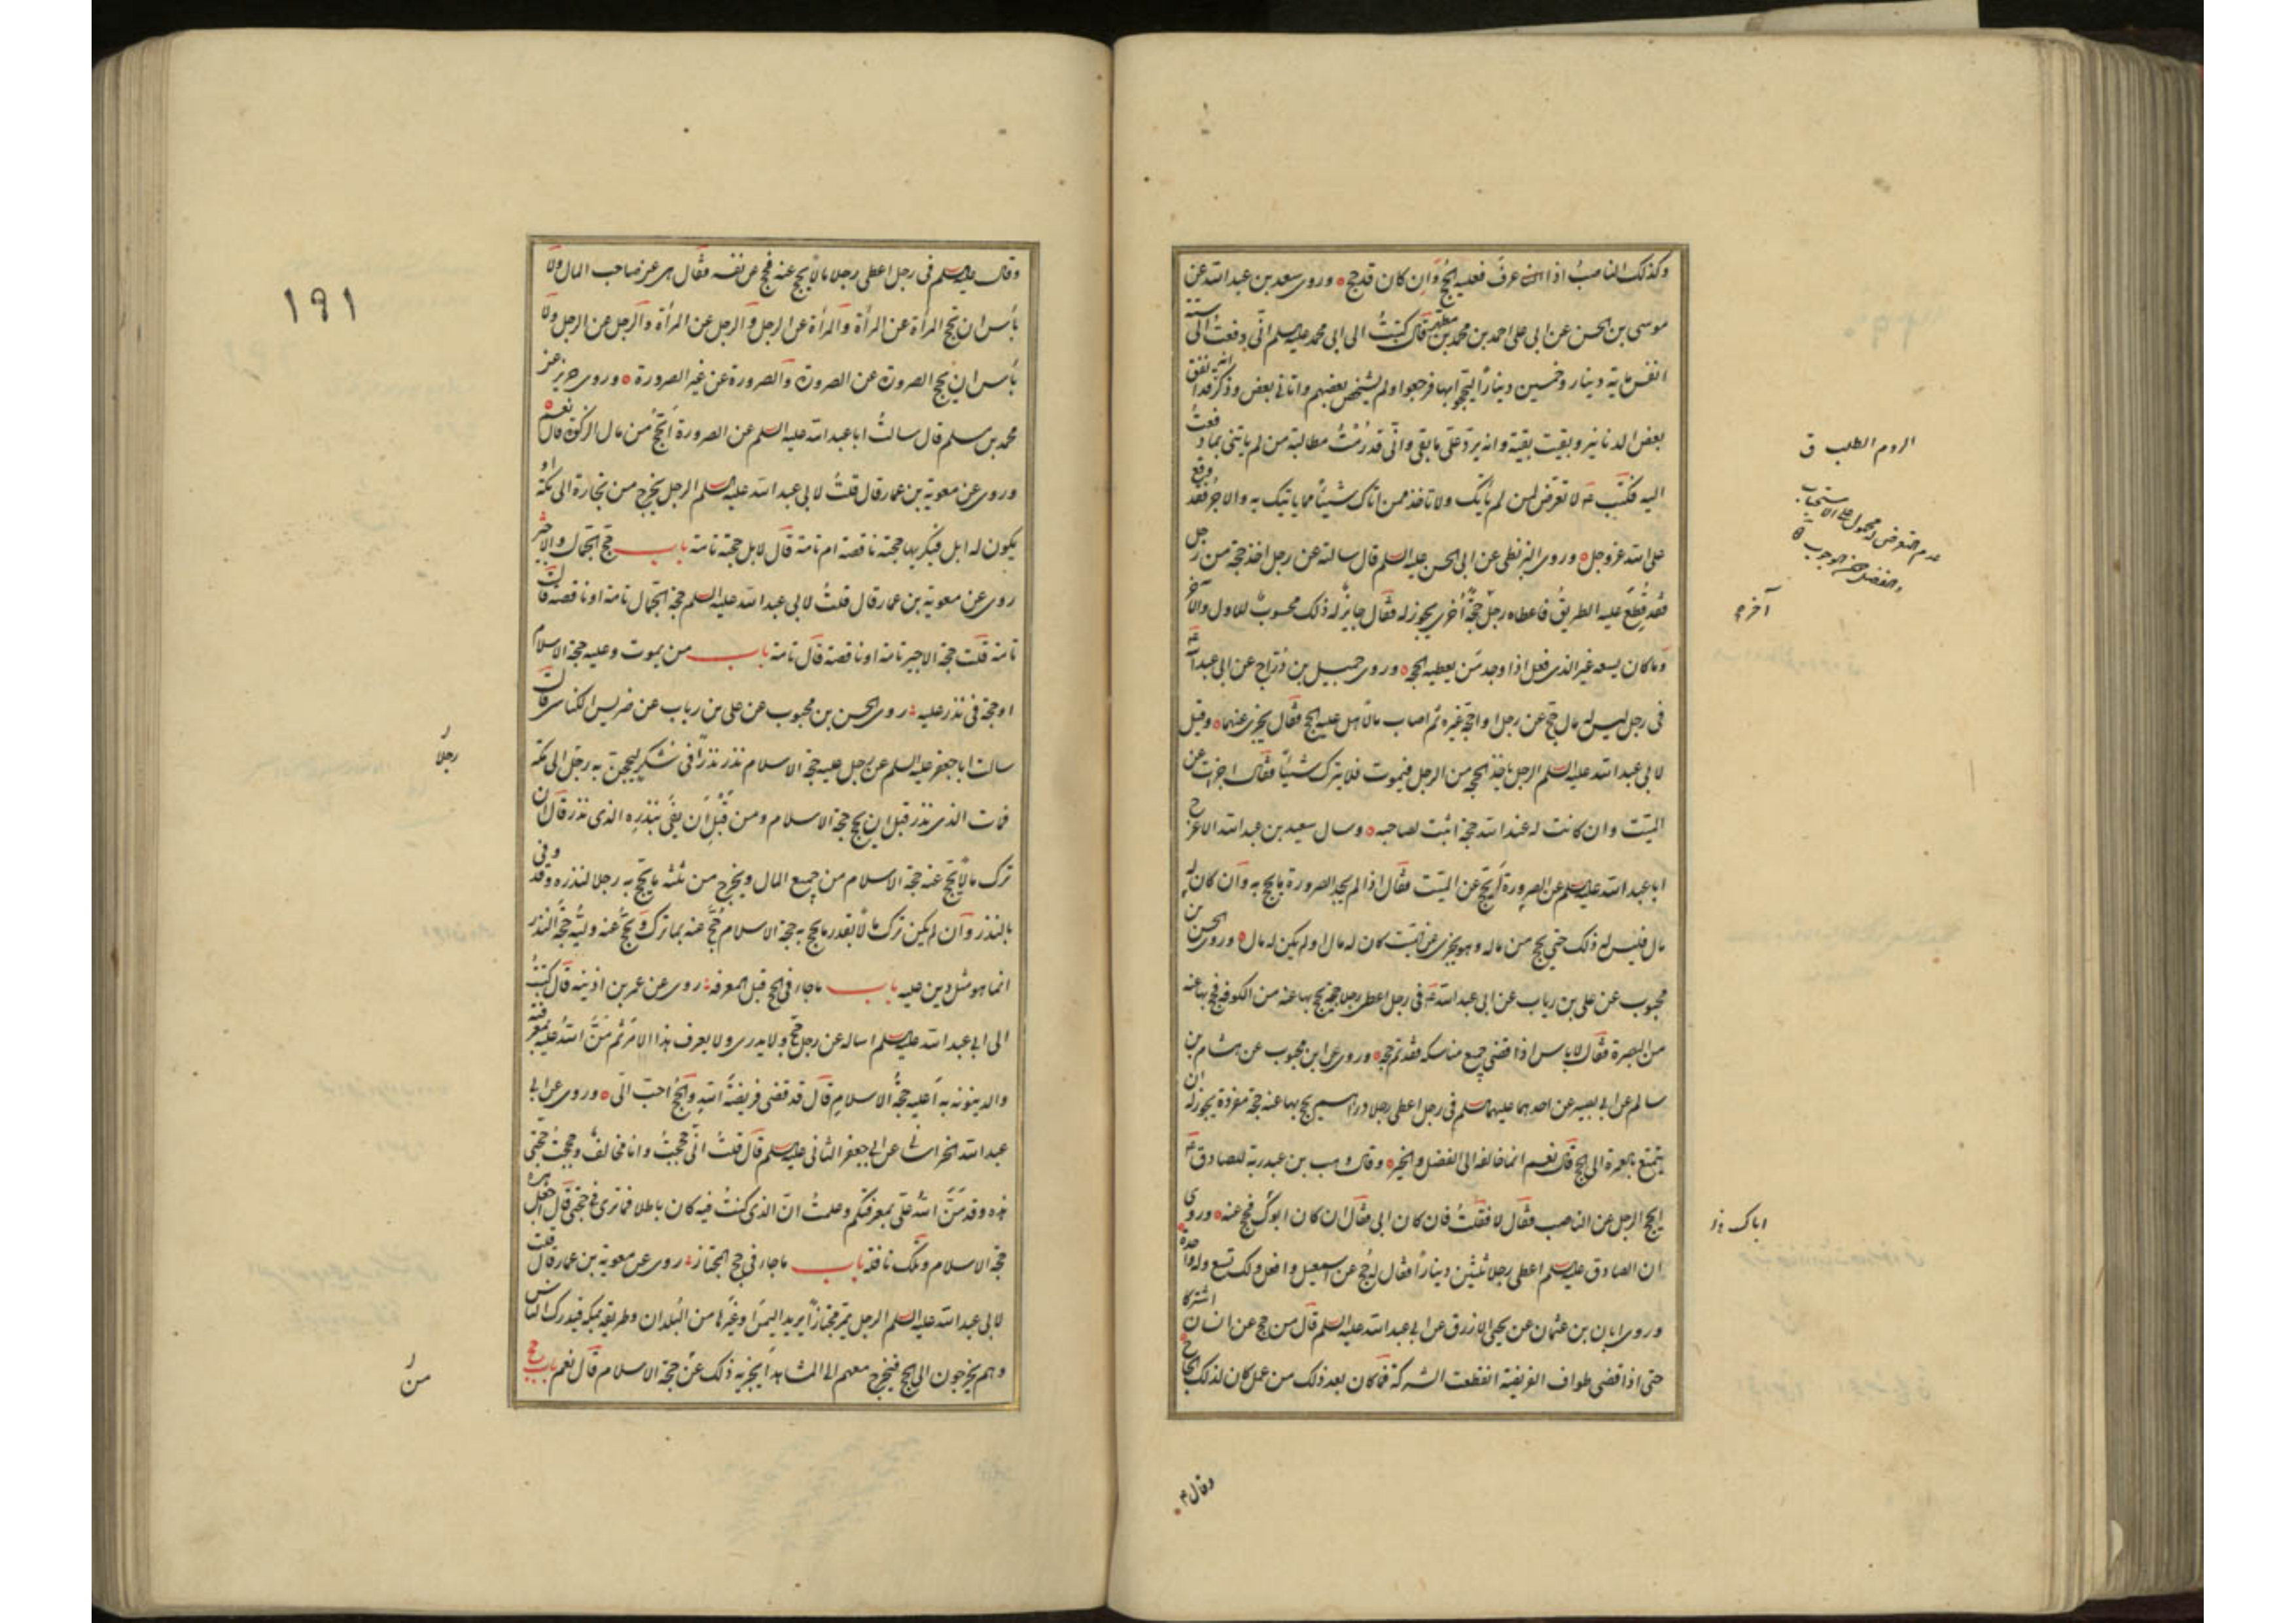 وكذلك الناصب اذا عرف فعليه الحج وان كان قد حج وروى سعد بن عبد الله عن
موسى بن الحسن عن ابى على احمد بن محمد بن مطهر قال كتبت الى ابى محمد عليه السلم انى دفعت الى ستة
انفس ماية دينار وخمسين دينارا ليحجوا بها فرجعوا ولم يشخص بعضهم واتانى بعض وذكر انه قد انفق
بعض الدنانير وبقيت بقية وانه يرد على ما بقى وانى قد رمت مطالبة من لم ياتنى بما دفعت
اليه فكتب ع لا تعرض لمن لم يأتك ولا تاخذ ممن اتاك شيئا مما ياتيك به والاجر فقد وقع
على الله عز وجل وروى البزنطى عن ابى الحسن عليه السلم قال سالته عن رجل اخذ حجة من رجل
فقطع عليه الطريق فاعطاه رجل حجة اخرى يجوز له فقال جايز له ذلك محسوب للاول والآخر
وما كان يسعه غير الذى فعل اذا وجد من يعطيه الحجة وروى جميل بن دراج عن ابى عبد الله ع
فى رجل ليس له مال حج عن رجل او احجه غيره ثم اصاب مالا هل عليه الحج فقال يجزى عنهما وقيل
لابى عبد الله عليه السلم الرجل ياخذ الحجة من الرجل فيموت فلا يترك شيئا فقال اجزات عن
الميت وان كانت له عند الله حجة اثبتت لصاحبه وسال سعيد بن عبد الله الاعرج
ابا عبد الله عليه السلم عن الصرورة ايحج عن الميت فقال اذا لم يجد الصرورة ما يحج به وان كان له
مال فليس له ذلك حتى يحج من ماله وهو يجزى عن الميت كان له مال او لم يكن له مال وروى الحسن بن
محبوب عن على بن رياب عن ابى عبد الله ع فى رجل اعطى رجلا حجة يحج بها عنه من الكوفة فحج بها عنه
من البصرة فقال لا باس اذا قضى جميع مناسكه فقد تم حجه وروى ابن محبوب عن هشام بن
سالم عن ابى بصير عن احدهما عليهما السلم فى رجل اعطى رجلا دراهم يحج بها عنه حجة مفردة يجوز له ان
يتمتع بالعمرة الى الحج قال نعم انما خالفه الى الفضل والخير وقال وهب بن عبد ربه للصادق ع
ايحج الرجل عن الناصب فقال لا فقلت فان كان ابى فقال ان كان ابوك فحج عنه وروى
ان الصادق عليه السلم اعطى رجلا ثلثين دينارا فقال له حج عن اسمعيل وافعل ولك تسع وله واحدة
وروى ابان بن عثمان عن يحيى الازرق عن ابى عبد الله عليه السلم قال من حج عن انسان اشتركا
حتى اذا قضى طواف الفريضة انقطعت الشركة فما كان بعد ذلك من عمل كان لذلك الحاج
الروم الطلب ق
عدم التعرض له محمول على الاستحباب
آخر
اباك
وقال ع
١٩١
وقال عليه السلم فى رجل اعطى رجلا مالا يحج عنه فحج عن نفسه فقال هى عن صاحب المال ولا
بأس ان تحج المرأة عن المرأة والمرأة عن الرجل والرجل عن المرأة والرجل عن الرجل ولا
بأس ان يحج الصرورة عن الصرورة والصرورة عن غير الصرورة وروى حريز عن
محمد بن مسلم قال سالت ابا عبد الله عليه السلم عن الصرورة ايحج من مال الزكوة قال نعم
وروى عن معوية بن عمار قال قلت لابى عبد الله عليه السلم الرجل يخرج من تجارة الى مكة او
يكون له ابل فيكريها حجته ناقصة ام تامة قال لا بل حجته تامة باب حج الجمال والاجير
روى عن معوية بن عمار قال قلت لابى عبد الله عليه السلم حجة الجمال تامة او ناقصة قال
تامة قلت حجة الاجير تامة او ناقصة قال تامة باب من يموت وعليه حجة الاسلام
او حجة فى نذر عليه روى الحسن بن محبوب عن على بن رياب عن ضريس الكناسى قال
سالت ابا جعفر عليه السلم عن رجل عليه حجة الاسلام نذر نذرا فى شكر ليحجن به رجل الى مكة
فمات الذى نذر قبل ان يحج حجة الاسلام ومن قبل ان يفى بنذره الذى نذر قال ان
ترك مالا يحج عنه حجة الاسلام من جميع المال ويخرج من ثلثه ما يحج به رجلا لنذره وقد وفى
بالنذر وان لم يكن ترك مالا بقدر ما يحج به حجة الاسلام حج عنه بما ترك ويحج عنه وليه حجة النذر
انما هو مثل دين عليه باب ما جاء فى الحج قبل المعرفة روى عن عمر بن اذينه قال كتبت
الى ابى عبد الله عليه السلم اساله عن رجل حج ولا يدرى ولا يعرف هذا الامر ثم من الله عليه بمعرفته
والدينونة به اعليه حجة الاسلام قال قد قضى فريضة الله والحج احب الى وروى عن ابى
عبد الله الخراسانى عن ابى جعفر الثانى عليه السلم قال قلت انى حججت وانا مخالف وحججت حجتى
هذه وقد من الله على بمعرفتكم وعلمت ان الذى كنت فيه كان باطلا فما ترى فى حجتى قال اجعل هذه
حجة الاسلام وتلك نافلة باب ما جاء فى حج المجتاز روى عن معوية بن عمار قال قلت
لابى عبد الله عليه السلم الرجل يمر مجتازا يريد اليمن او غيرها من البلدان وطريقه بمكة فيدرك الناس
وهم يخرجون الى الحج فيخرج معهم الى المشاهد ايجزيه ذلك عن حجة الاسلام قال نعم باب حج
رجلا
من